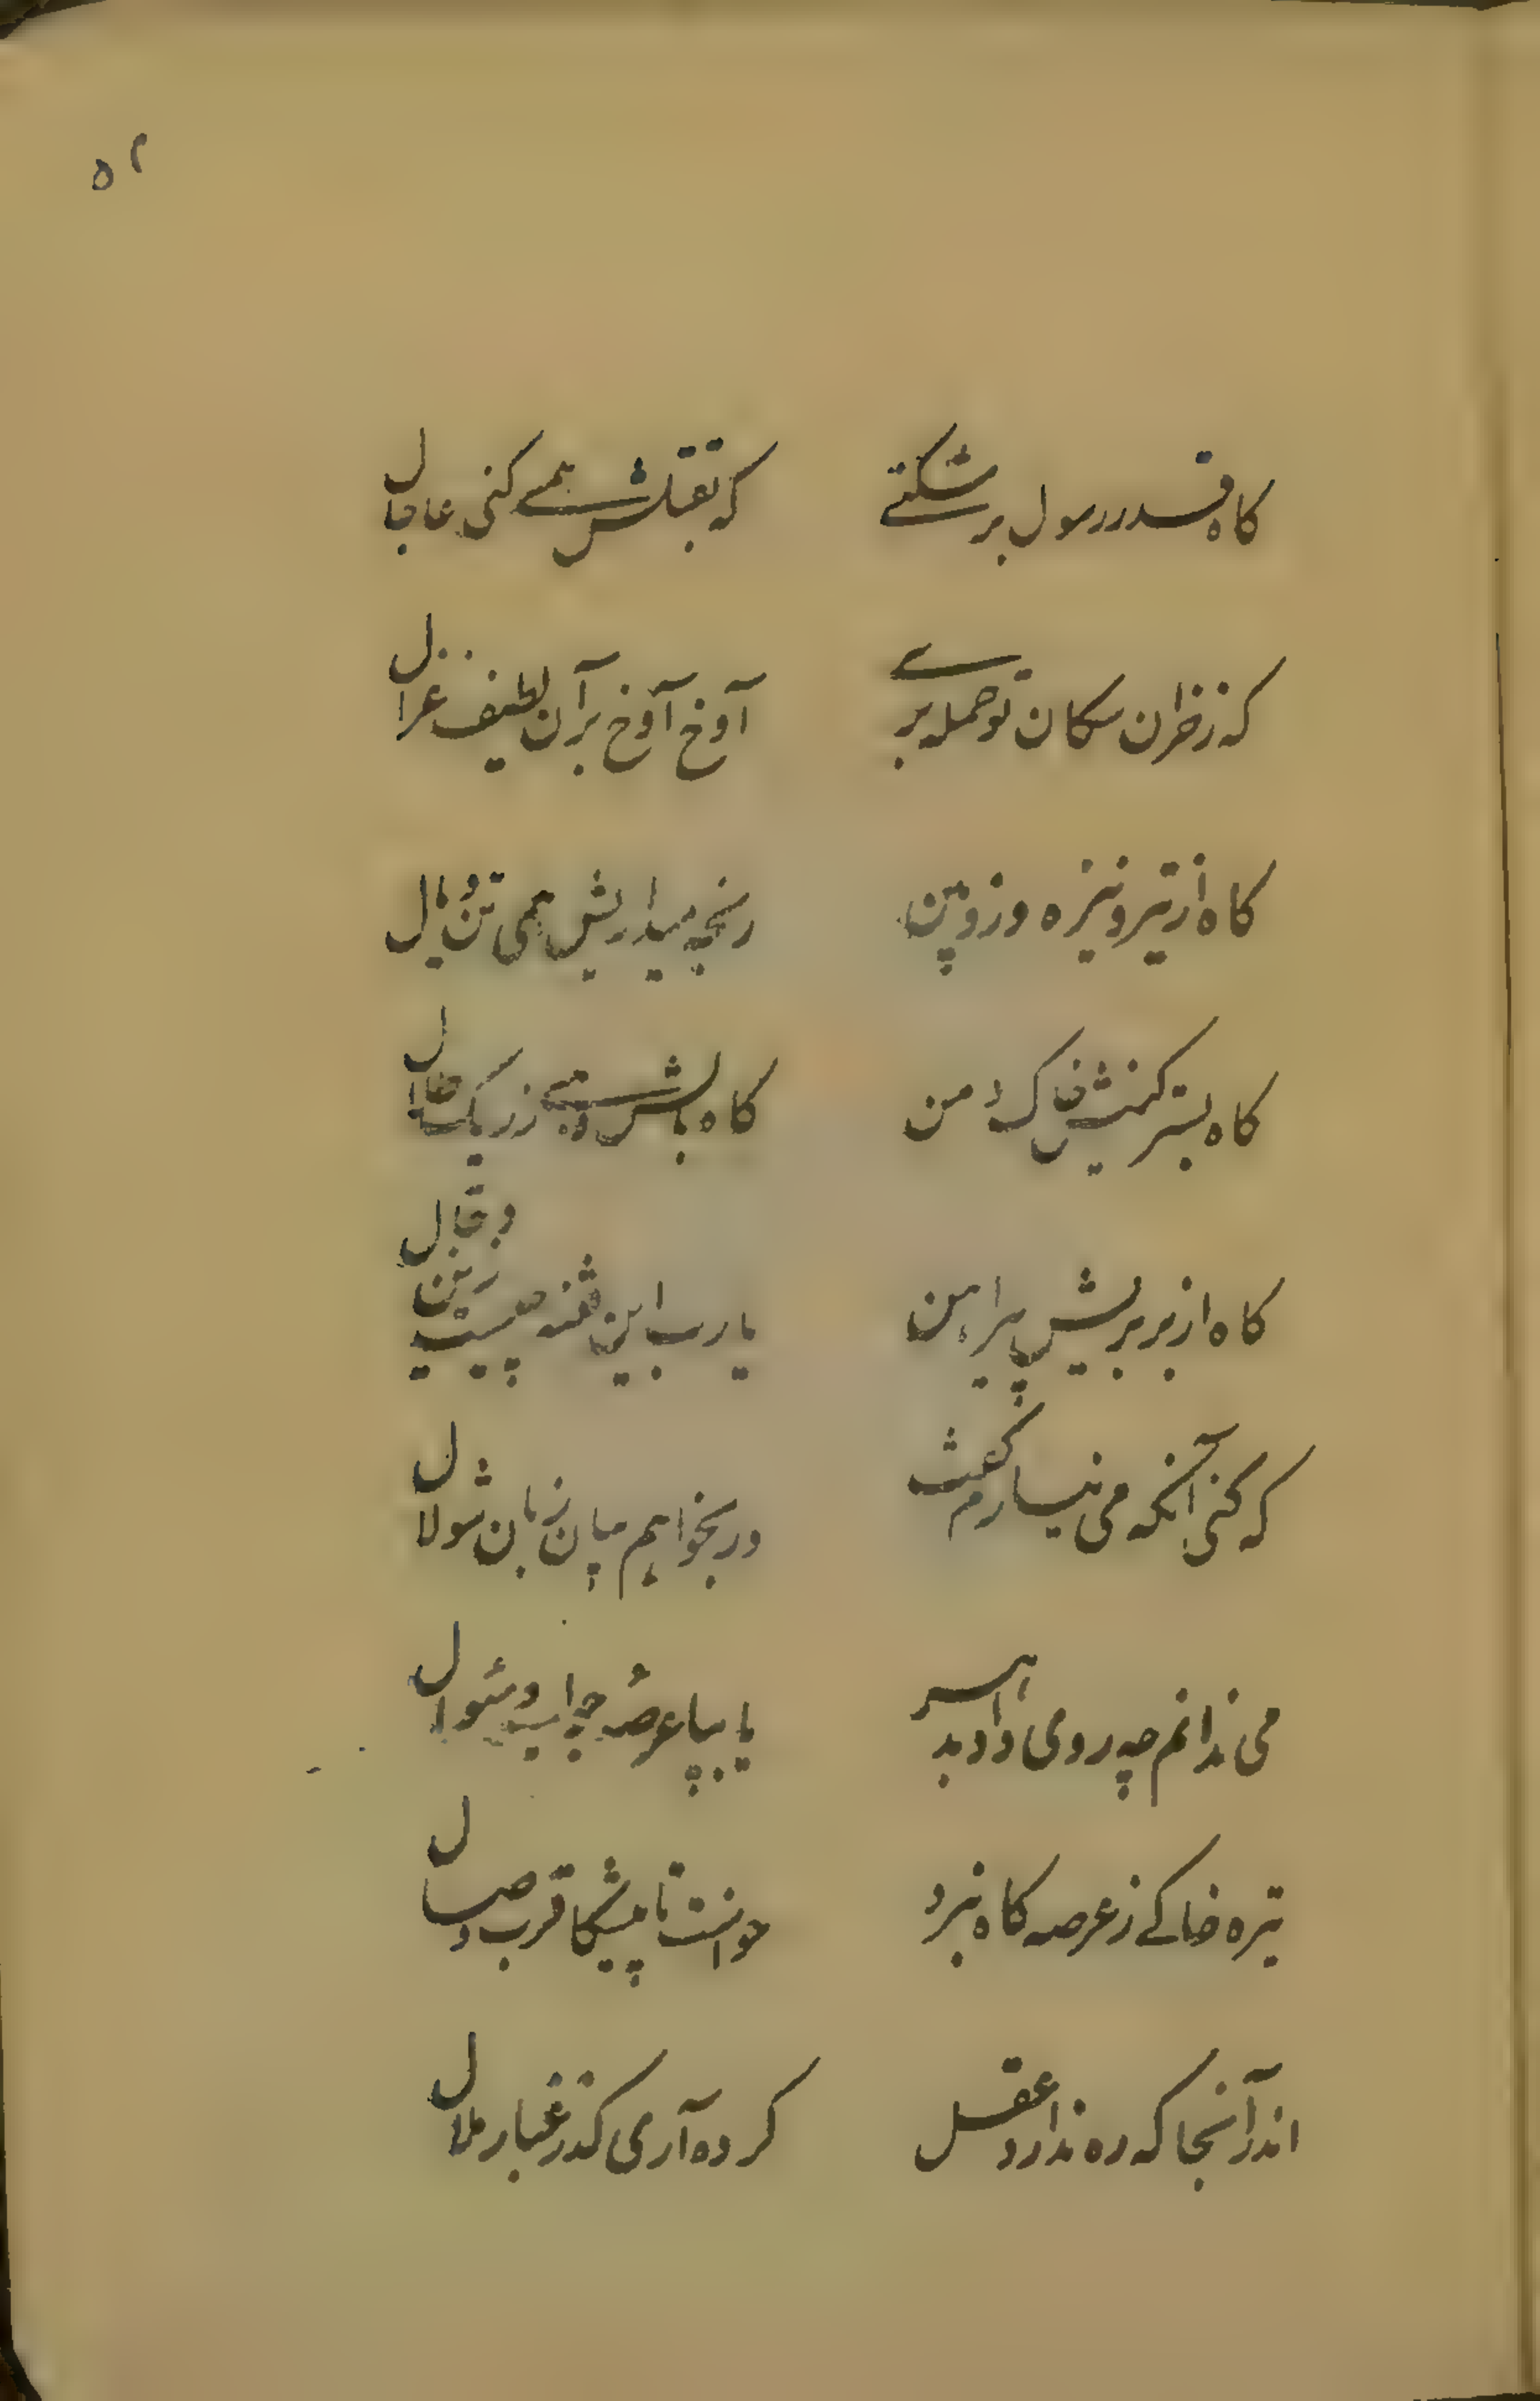 ۵۲
کاه قدر رسول بر شکنے که بقتلش همے کنی عاجال
که زخران سکان تو حمله برے آوخ آوخ بر آن لطیف غزال
کاه از تیر و نیزه و زوپین رنجه میداریش همی تن و یال
کاه بستر کنیش خاک دمن کاه بالش دهے ز ریک
کاه از بر بریش پیراهن یا رب این فتنه چیست
که کنی آنکه می نیارم گفت ور بخواهم میان زبان شولال
می ندانم چه رومی داد بد یا بپا عرصهٔ جواب و سئوال
تیره خاکے ز عرصه کاه نبرد خواست تا پیشکا قرب وصال
اندر آنجا که ره ندارد عقل کرده آری کذر غبار ملال